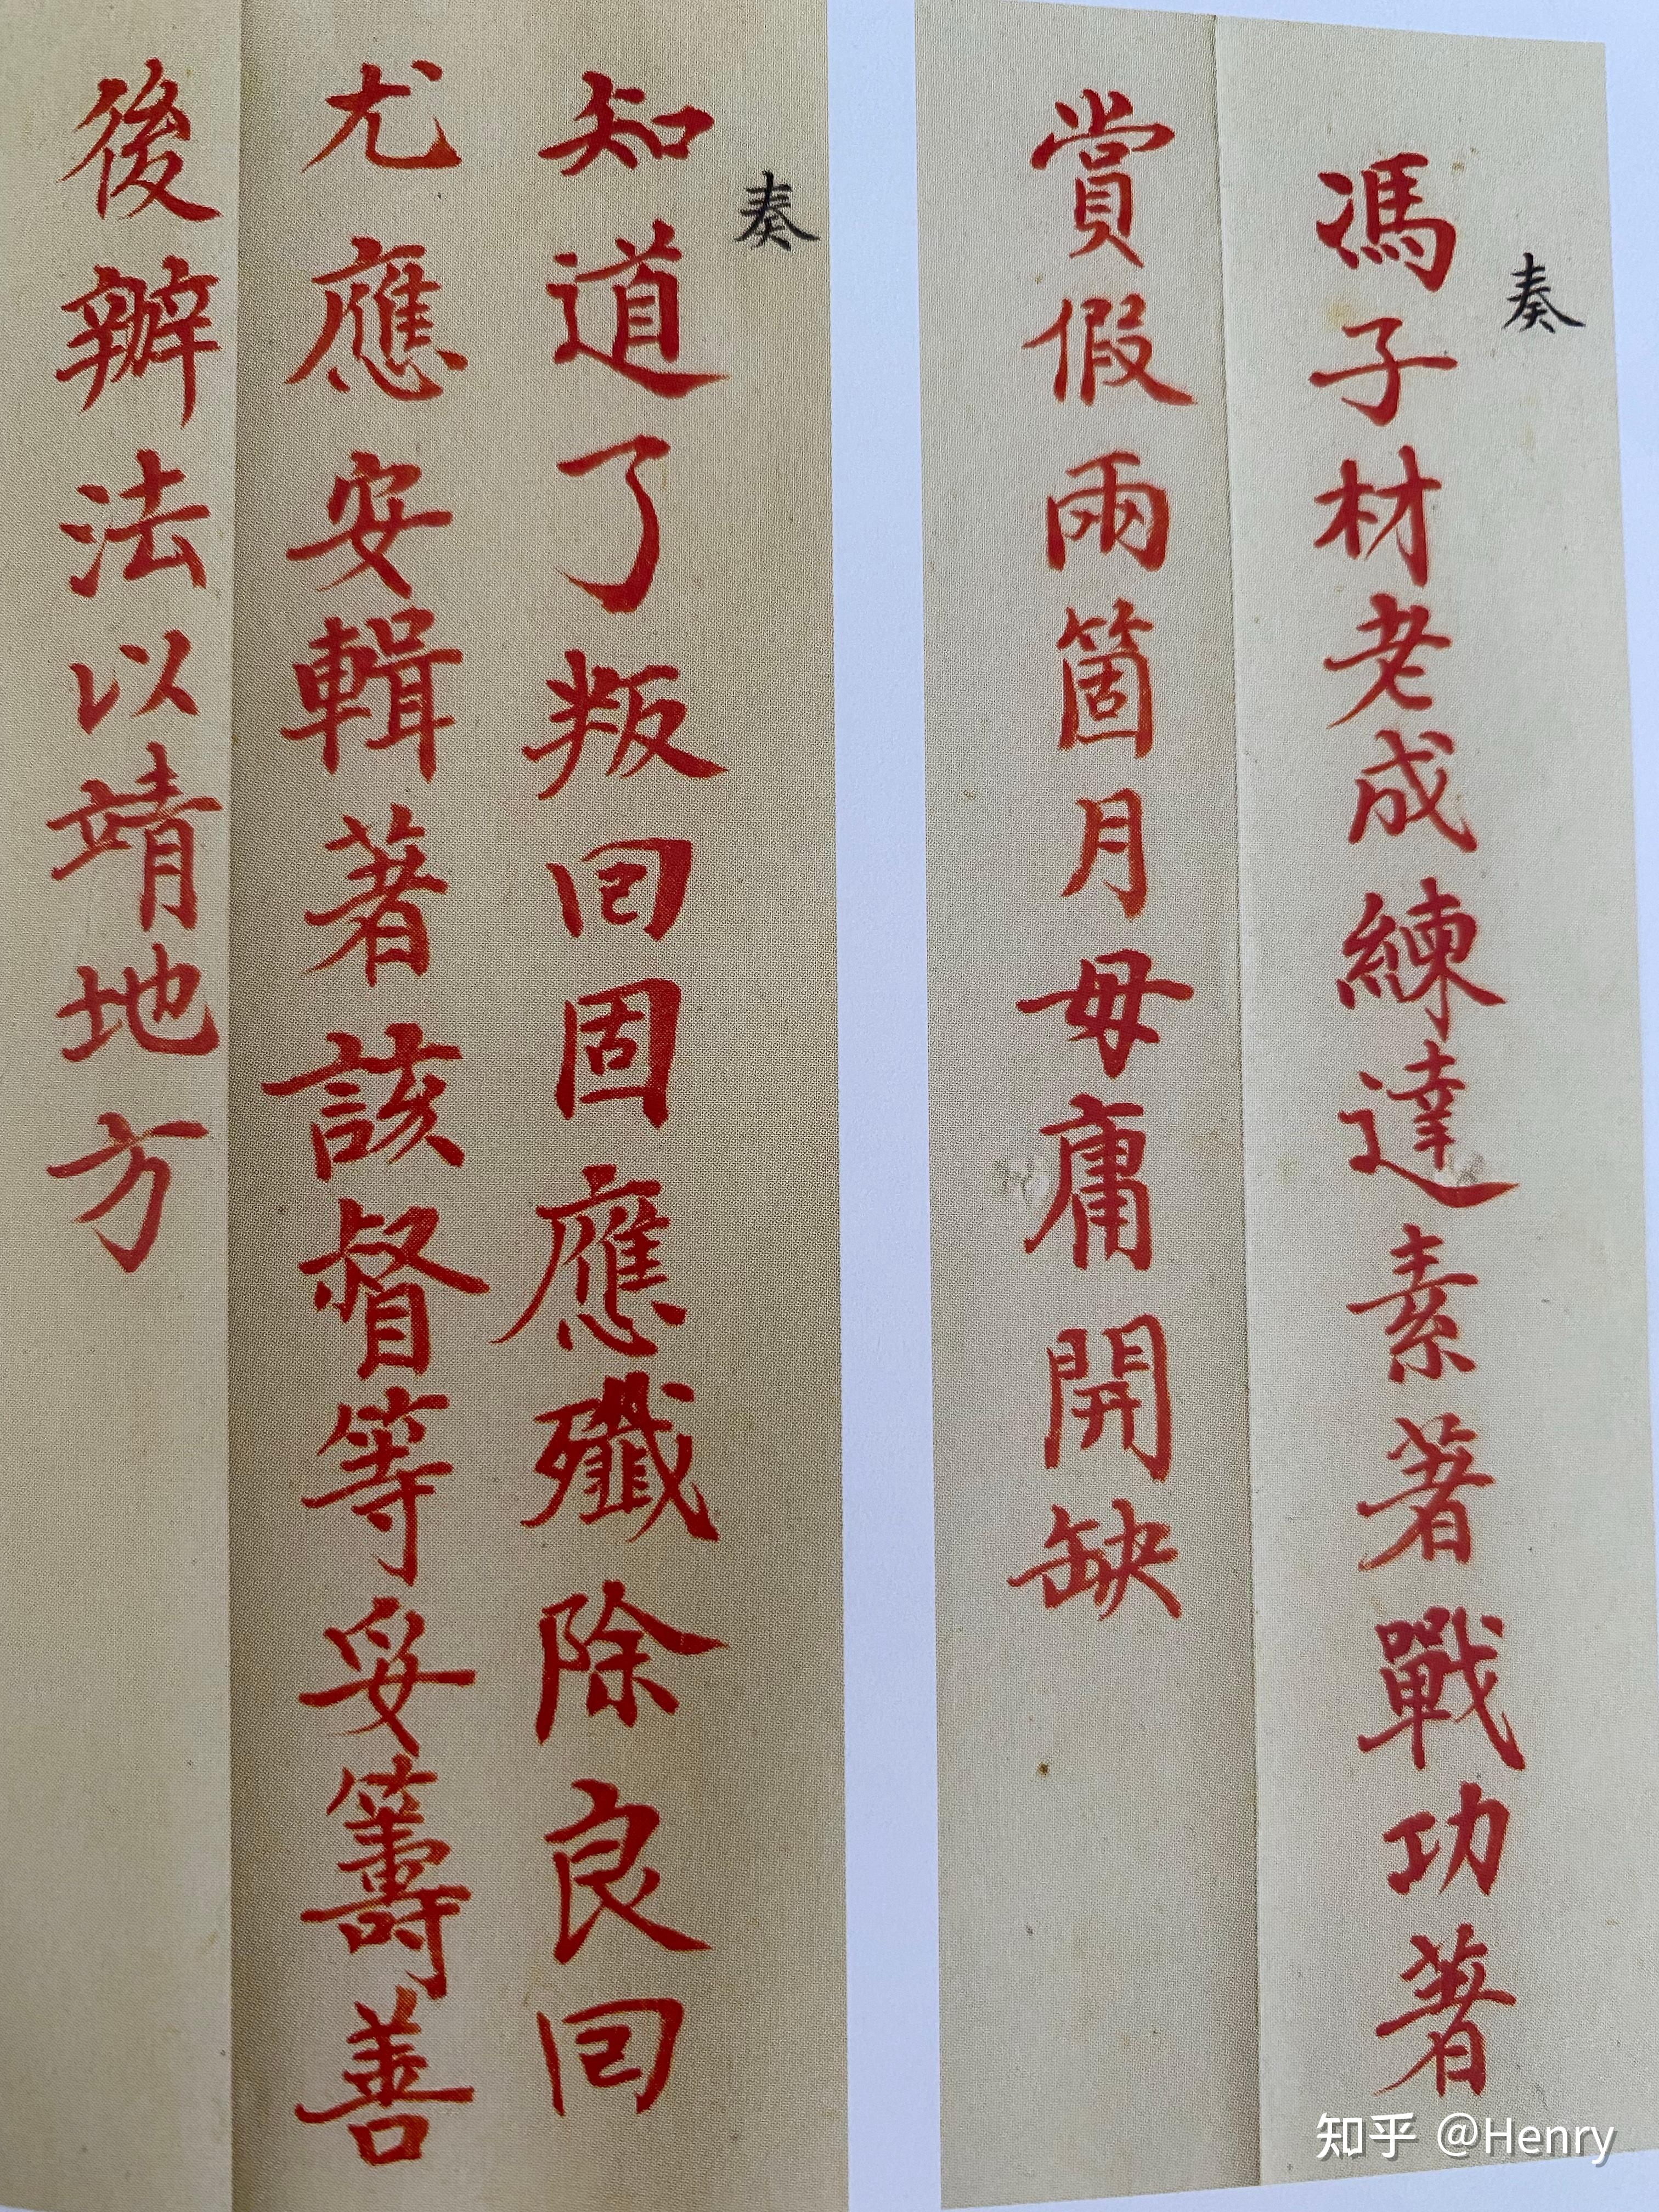 奏
馮子材老成練達素著戰功著
賞假兩箇月毋庸開缺
奏
知道了叛回固應殲除良回
尤應安輯著該督等妥籌善
後辦法以靖地方
知乎 @Henry